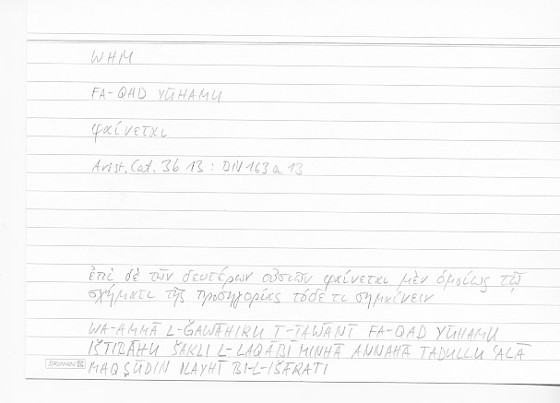 WHM
FA-QAD YŪHAMU
φαίνεται
Arist. Cat. 3b 13 : DIV 163 a 13
ἐπὶ δὲ τῶν δευτέρων οὐσιῶν φαίνεται μὲν ὁμοίως τῷ
σχήματι τῆς προσηγορίας τόδε τι σημαίνειν
WA-AMMĀ L-ǦAWĀHIRU Ṯ-ṮAWĀNĪ FA-QAD YŪHAMU
IŠTIBĀHU ŠAKLI L-LAQABI MINHĀ ANNAHĀ TADULLU ʿALĀ
MAQṢŪDIN ILAYHĪ BI-L-IŠĀRATI